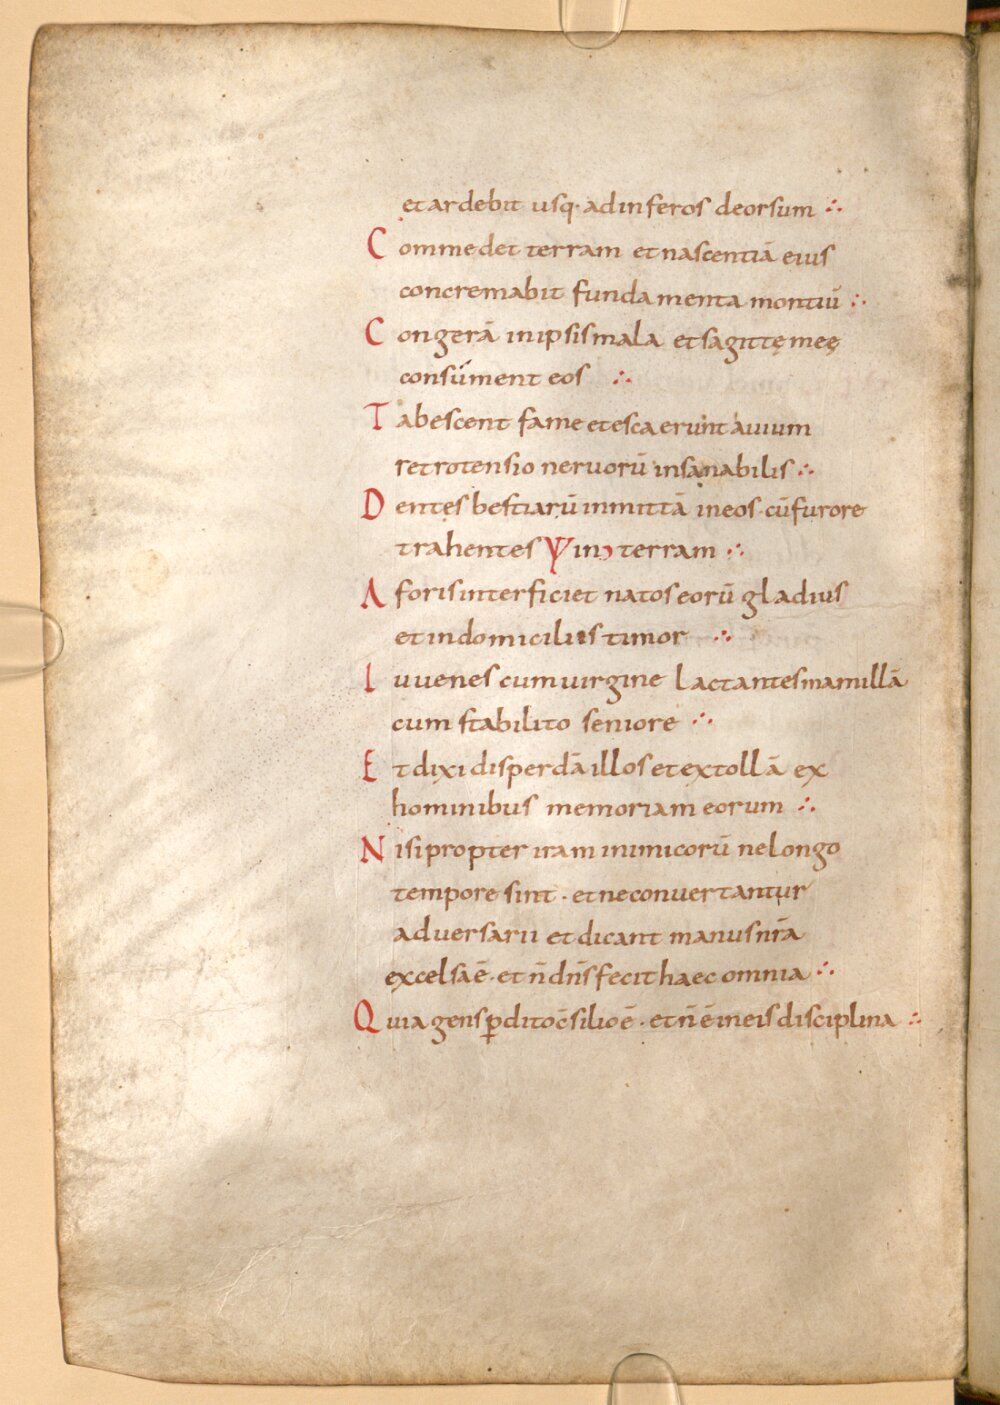 et ardebit usq· ad inferos deorsum ∴
Commedet terram et nascentiā eius
concremabit fundamenta montiū ∴
Congerā in ipsis mala et sagittę meę
consúment eos ∴
Tabescent fame et esca erunt auium
retrotensio neruorū insanabilis ∴
Dentes bestiarū inmittā in eos· cū furore
trahentes in terram ∴
A foris interficiet natos eorū gladius
et in domiciliis timor ∴
Iuuenes cum uirgine lactantes mamillā
cum stabilito seniore ∴
Et dixi disperdā illos et extollā ex
hominibus memoriam eorum ∴
Nisi propter iram inimicorū ne longo
tempore sint · et ne convertantur
adversarii et dicant manus nr̄a
excelsa ē· et n̄ dn̄s fecit haec omnia ∴
Quia gens ꝑdito c̄silio ē · et n̄ ē in eis disciplina ∴